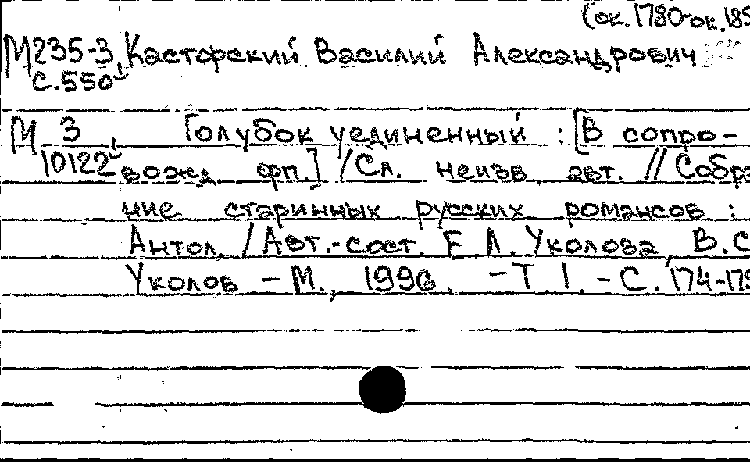 (ок. 1780-ок. 185
М235-3 Касторский Василий Александрович
с.550
М 3 Голубок уединенный : [В сопро-
10122 вожд. фп.] / Сл. неизв. авт. // Собра
ние старинных русских романсов :
Антол. / Авт.-сост. Е.Л. Уколова, В.С
Уколов - М., 1996. - Т. 1. - С. 174-175